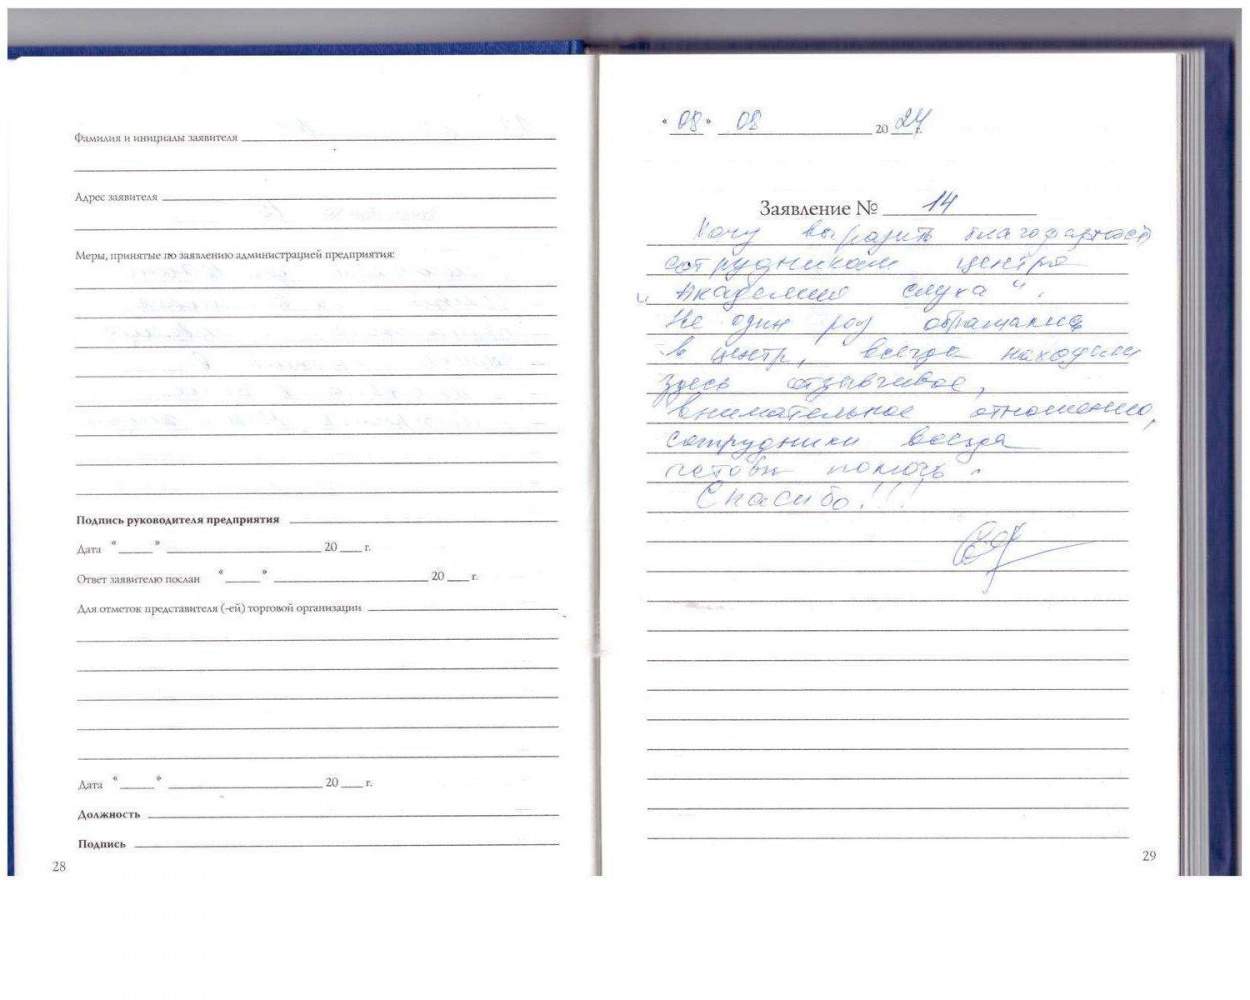 Фамилия и инициалы заявителя
Адрес заявителя
Меры, принятые по заявлению администрацией предприятия:
Подпись руководителя предприятия
Дата " " 20 г.
Ответ заявителю послан " " 20 г.
Для отметок представителя (-ей) торговой организации
Дата " " 20 г.
Должность
Подпись
28
"08" 08 2024 г.
Заявление № 14
Хочу выразить благодарность
сотрудникам центра
"Академия слуха".
Не один раз обращались
в центр, всегда находили
здесь отзывчивое,
внимательное отношение,
сотрудники всегда
готовы помочь.
Спасибо!!!
29